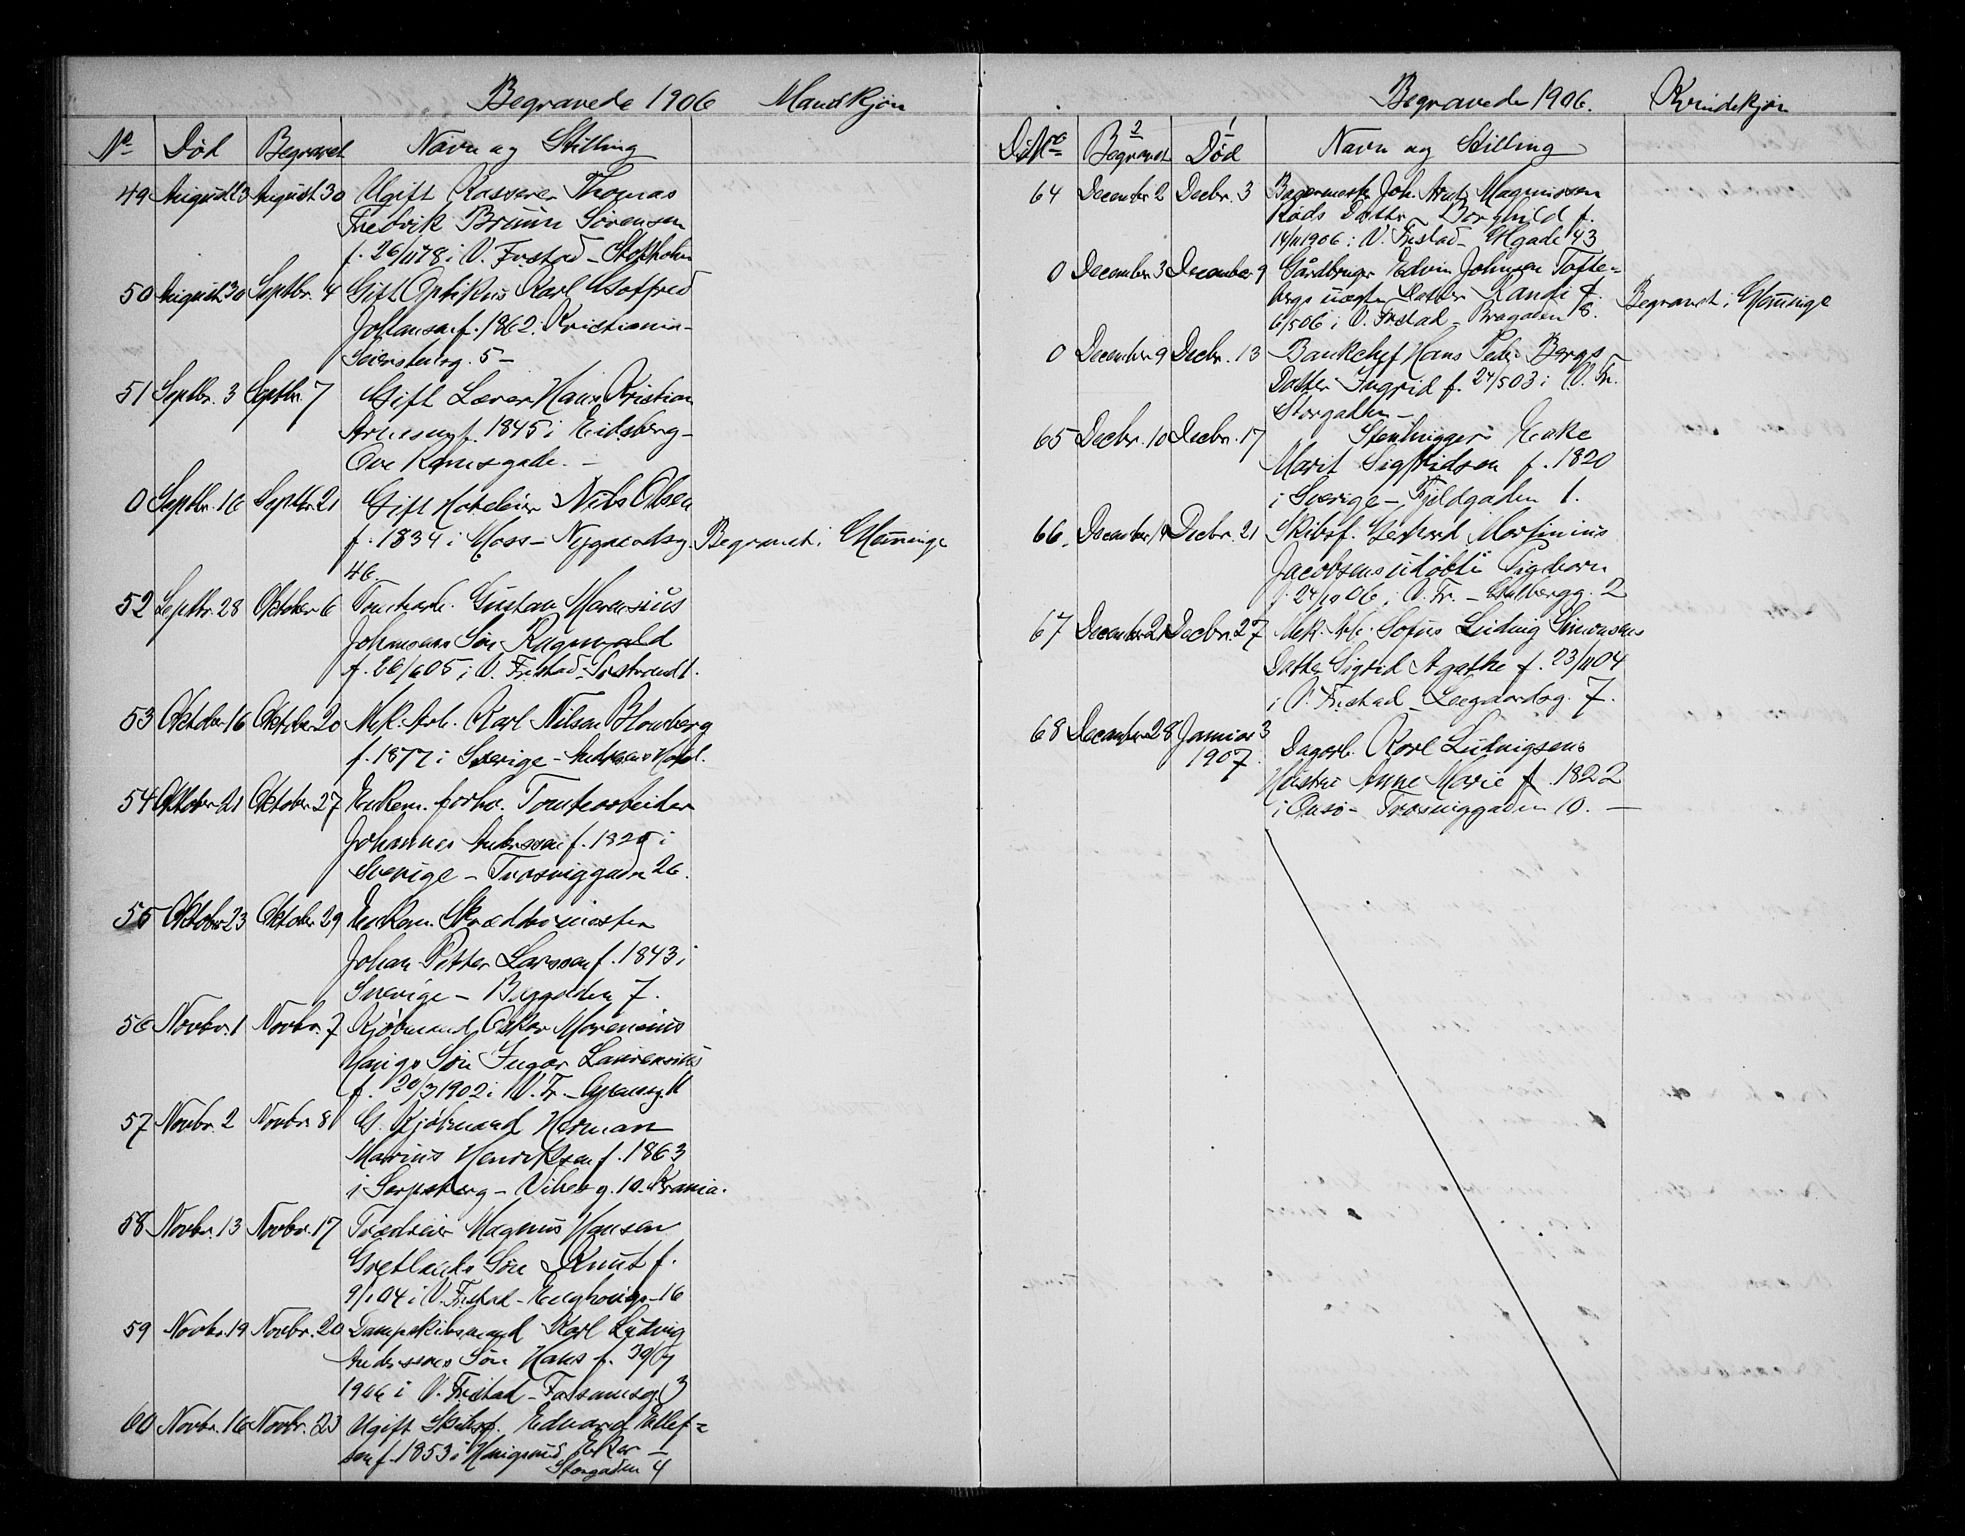 Begravede 1906 Mandkjøn
No Død Begravet Navn og Stilling
49 August 23 August 30 Ugift Kasserer Thomas
Fredrik Bruun Sørensen
f. 26/11 78 i V. Frstad - Stokholm
50 August 30 Septbr. 4 Gift Optikus Karl Gotfred
Johansen f. 1862 i Kristiania -
g. 5 -
51 Septbr. 3 Septbr. 7 Gift Lærer Hans Kristian
Arnesen f. 1845 i Eidsberg -
Ove Ramsgade. -
0 Septbr. 16 Septbr 21 Gift Hoteleier Nils Olsen
f. 1834 i Moss - Nygaardsg. Begravet i Glemminge
46.
52 Septbr. 28 Oktober 6 Tomtearb. Gustav Marensius
Johansens Søn Ragnvald
f. 26/6 05 i V. Frstad - 1.
53 Oktober 16 Oktober 20 Mek. Arb. Karl Nilsen Blomberg
f. 1877 i Sverige - Andersens Hotel.
54 Oktober 21 Oktober 27 Enkem. forhv. Tomtearbeider
Johannes Anderssen f. 1825 i
Sverige - Trosviggaden 26.
55 Oktober 23 Oktober 29 Enkem. Skræddermester
Johan Petter Larssen f. 1843 i
Sverige - 7.
56 Novbr. 1 Novbr. 7 Kjøbmand Oskar Marenius
Haugs Søn Ingar Laurensius
f. 20/3 1902 i V. Fr.
57 Novbr. 2 Novbr. 8 G. Kjøbmand Herman
Marius Henriksen f. 1863
i Sarpsborg - Vibesg. 10. Krania.
58 Novbr. 13 Novbr. 17 Magnus Hansen
Gretlands Søn Knut f.
9/1 04 i V. Frstad - 16
59 Novbr. 19 Novbr. 20 Dampskibsmand Karl Ludvig
Anderssens Søn Hans f. 30/7
1906 i V. Frstad - 3
60 Novbr. 16 Novbr. 23 Ugift Skibsf. Edvard Ellef=
sen f. 1853 i Haugsund Eker -
Storgaden 4
Begravede 1906. Kvindekjøn
Død No Begravet 2 Død 1 Navn og Stilling
64 December 2 Decbr. 3 Bagermester Joh. Arnt Magnussen
Røds Datter Borghild f.
14/11 1906 i V. Frstad - Glgade 43
0 December 3 December 9 Gårdbruger Edvin Johnsen Tofte=
bergs uægte Datter Randi f.
6/5 06 i V. Frstad - Bragaden 8. Begravet i Glemminge
0 December 9 Decbr. 13 Bankchef Hans Peder Bergs
Datter Ingrid f. 24/5 03 i V. Fr.
Storgaden -
65 Decbr. 10 Decbr. 17 Stenhugger Enke
Marit Sigfridsen f. 1820
i Sverige - Fjeldgaden 1.
66. December Decbr. 21 Skibsf. Gerhard Martinius
Jacobsens udøbte Pigebarn
f. 24/10 06 i V. Fr. - 2
67 December 21 Decbr. 27 Mek. Arb. Sofus Ludvig Simonsens
Datter Sigrid Agathe f. 23/11 04
i V. Frstad - Leegaardsg. 7.
68 December 28 Januar 3
1907 Dagarb. Karl Ludvigsens
Hustru Anne Marie f. 1822
i Onsø - Trosviggaden 10. -